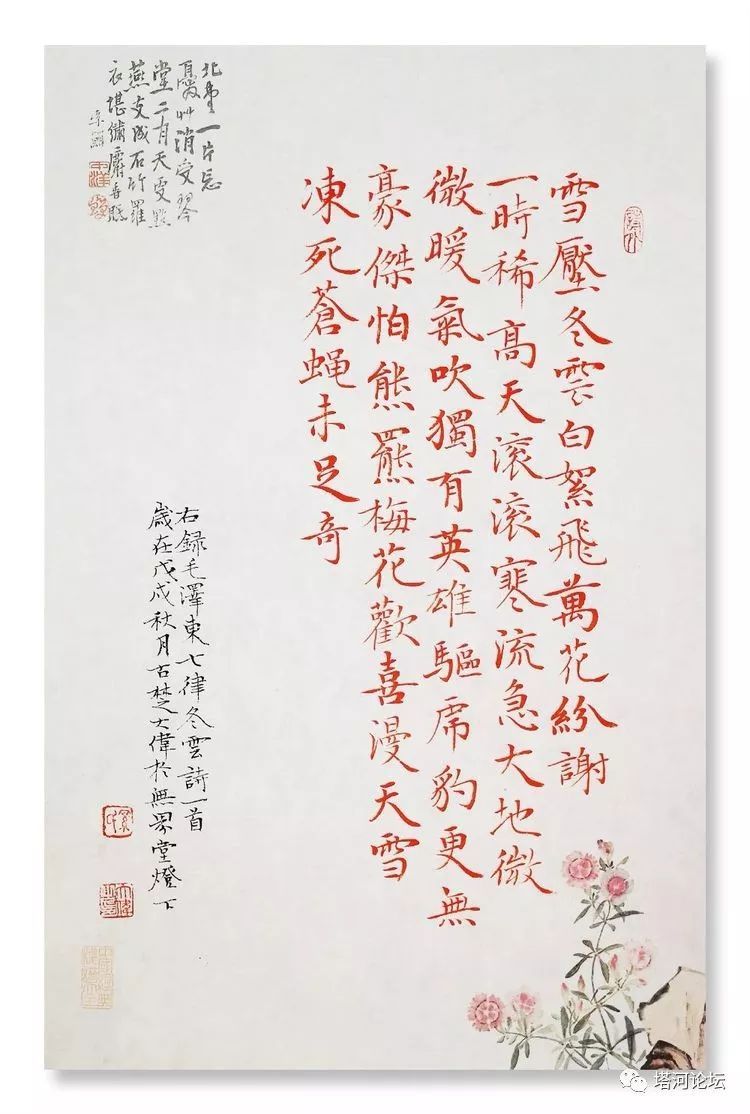 雪壓冬雲白絮飛萬花紛謝
一時稀高天滾滾寒流急大地微
微暖氣吹獨有英雄驅虎豹更無
豪傑怕熊羆梅花歡喜漫天雪
凍死蒼蠅未足奇
右錄毛澤東七律冬雲詩一首
歲在戊戌秋月古楚大偉於無界堂燈下
北堂一片忘
憂艸消受琴
堂五月天更點
燕支成石竹羅
衣堪繡麝香眠
李鱓
塔河论坛